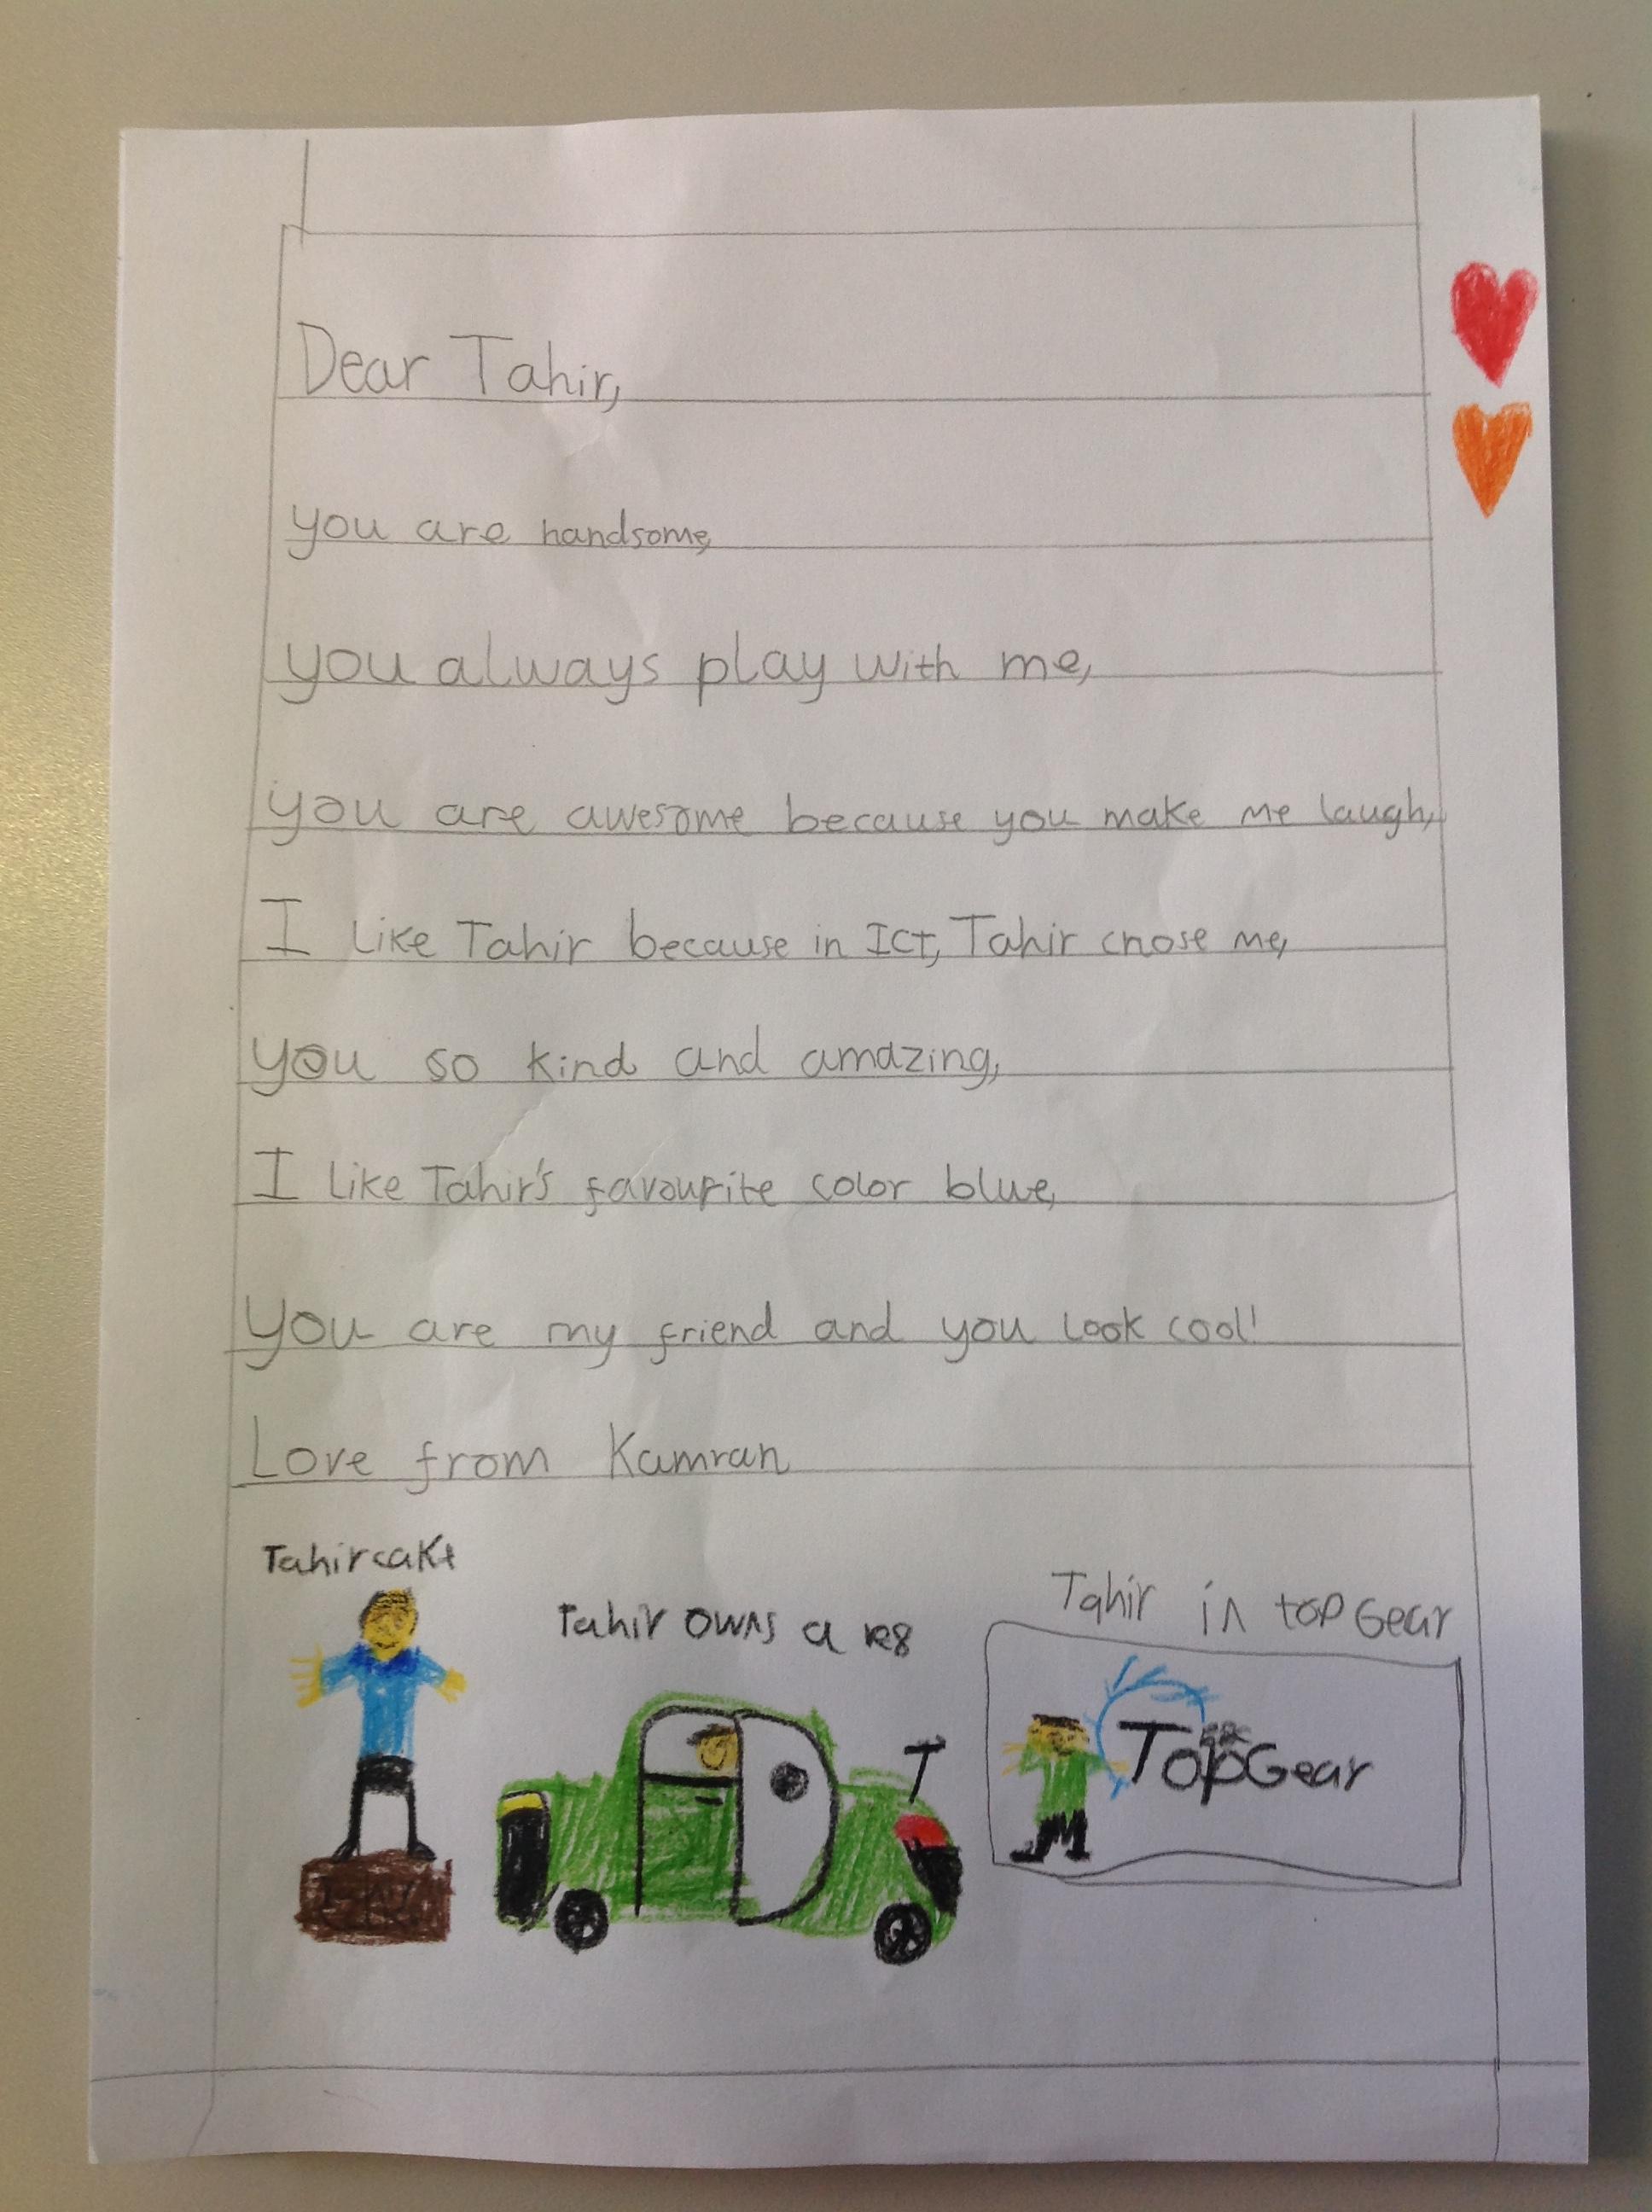 Dear Tahir,
you are handsome,
you always play with me,
you are awesome because you make me laugh,
I like Tahir because in ICT, Tahir chose me,
you so kind and amazing,
I like Tahir's favourite color blue,
you are my friend and you look cool!
Love from Kamran
Tahir
Tahir owns a R8
Tahir in top Gear
T
TopGear